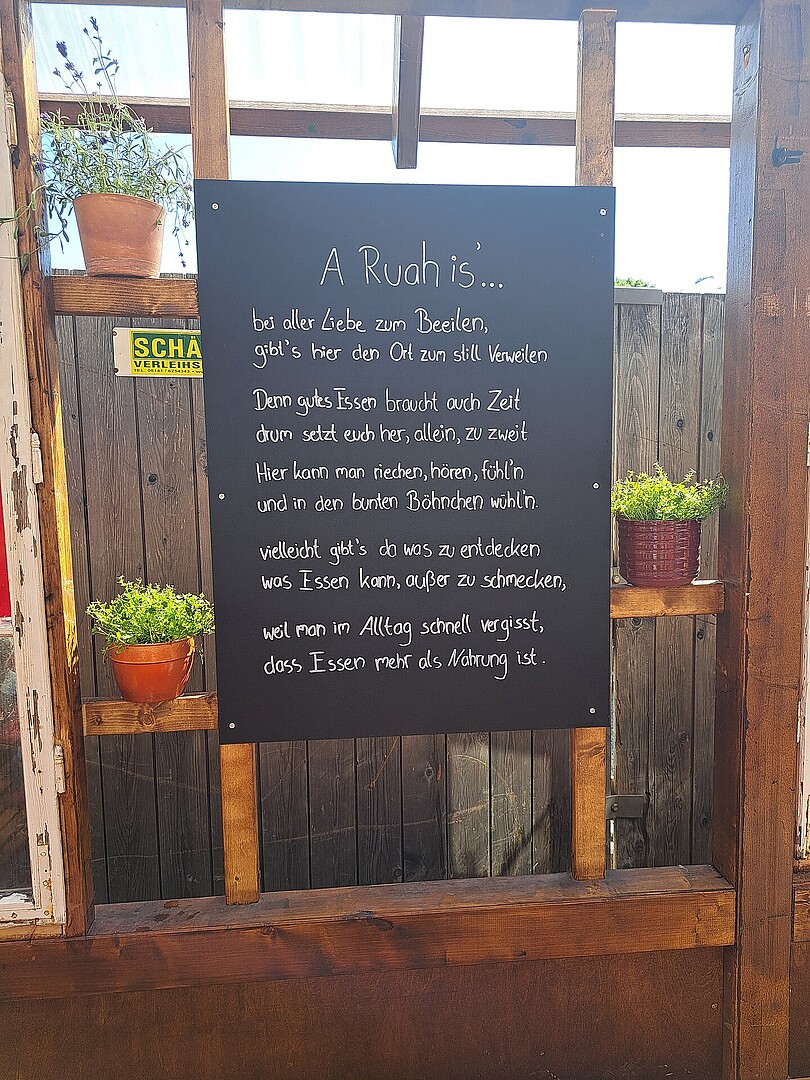 A Ruah is'...
bei aller Liebe zum Beeilen,
gibt's hier den Ort zum still Verweilen
Denn gutes Essen braucht auch Zeit
drum setzt euch her, allein, zu zweit
Hier kann man riechen, hören, fühl'n
und in den bunten Böhnchen wühl'n.
vielleicht gibt's da was zu entdecken
was Essen kann, außer zu schmecken,
weil man im Alltag schnell vergisst,
dass Essen mehr als Nahrung ist.
SCHÄ
VERLEIHS